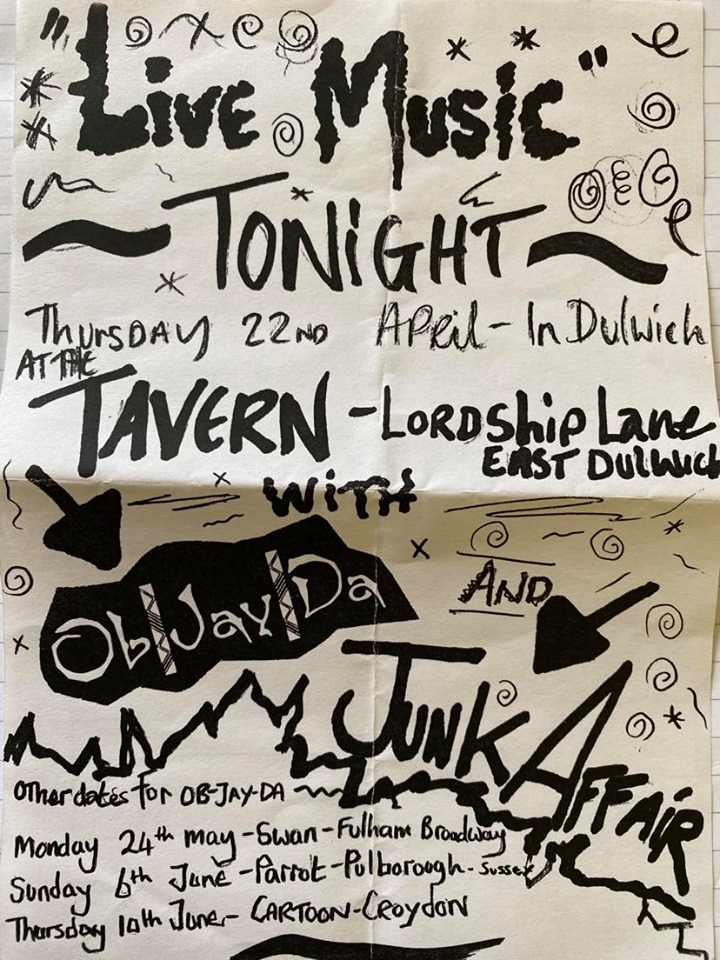 "Live Music"
TONiGHT
Thursday 22ND April - In Dulwich
AT THE
TAVERN - Lordship Lane
EAST DULWICH
WiTH
Ob|Jay|Da
AND
Junk Affair
Other dates for OB-JAY-DA
Monday 24th may - Swan - Fulham Broadway
Sunday 6th June - Parrot - Pulborough - Sussex
Thursday 10th June - CARTOON - Croydon